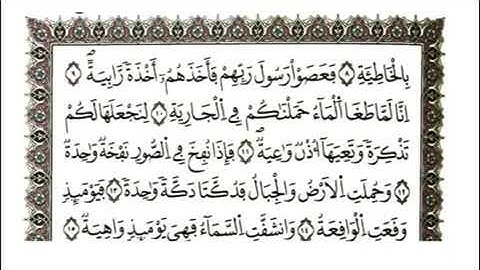 بِالْخَاطِئَةِ ٨ فَعَصَوْا رَسُولَ رَبِّهِمْ فَأَخَذَهُمْ أَخْذَةً رَّابِيَةً ٩
اِنَّا لَمَّا طَغَا اَلْمَآءُ حَمَلْنَاكُمْ فِي اِلْجَارِيَةِ ١٠ لِنَجْعَلَهَا لَكُمْ
تَذْكِرَةً وَتَعِيَهَا أُذْنٌ وَاعِيَةٌ ١١ فَإِذَا نُفِخَ فِي اِلصُّورِ نَفْخَةٌ وَاحِدَةٌ
١٢ وَحُمِلَتِ اِلْأَرْضُ وَالْجِبَالُ فَدُكَّتَا دَكَّةً وَاحِدَةً ١٣ فَيَوْمَئِذٍ
وَقَعَتِ اِلْوَاقِعَةُ ١٤ وَانشَقَّتِ اِلسَّمَآءُ فَهِيَ يَوْمَئِذٍ وَاهِيَةٌ ١٥